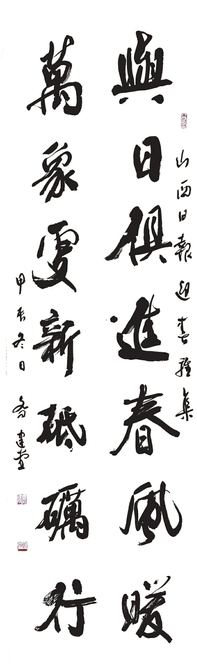 山西日報迎春雅集
與日俱進春風暖
萬象更新砥礪行
甲辰冬日